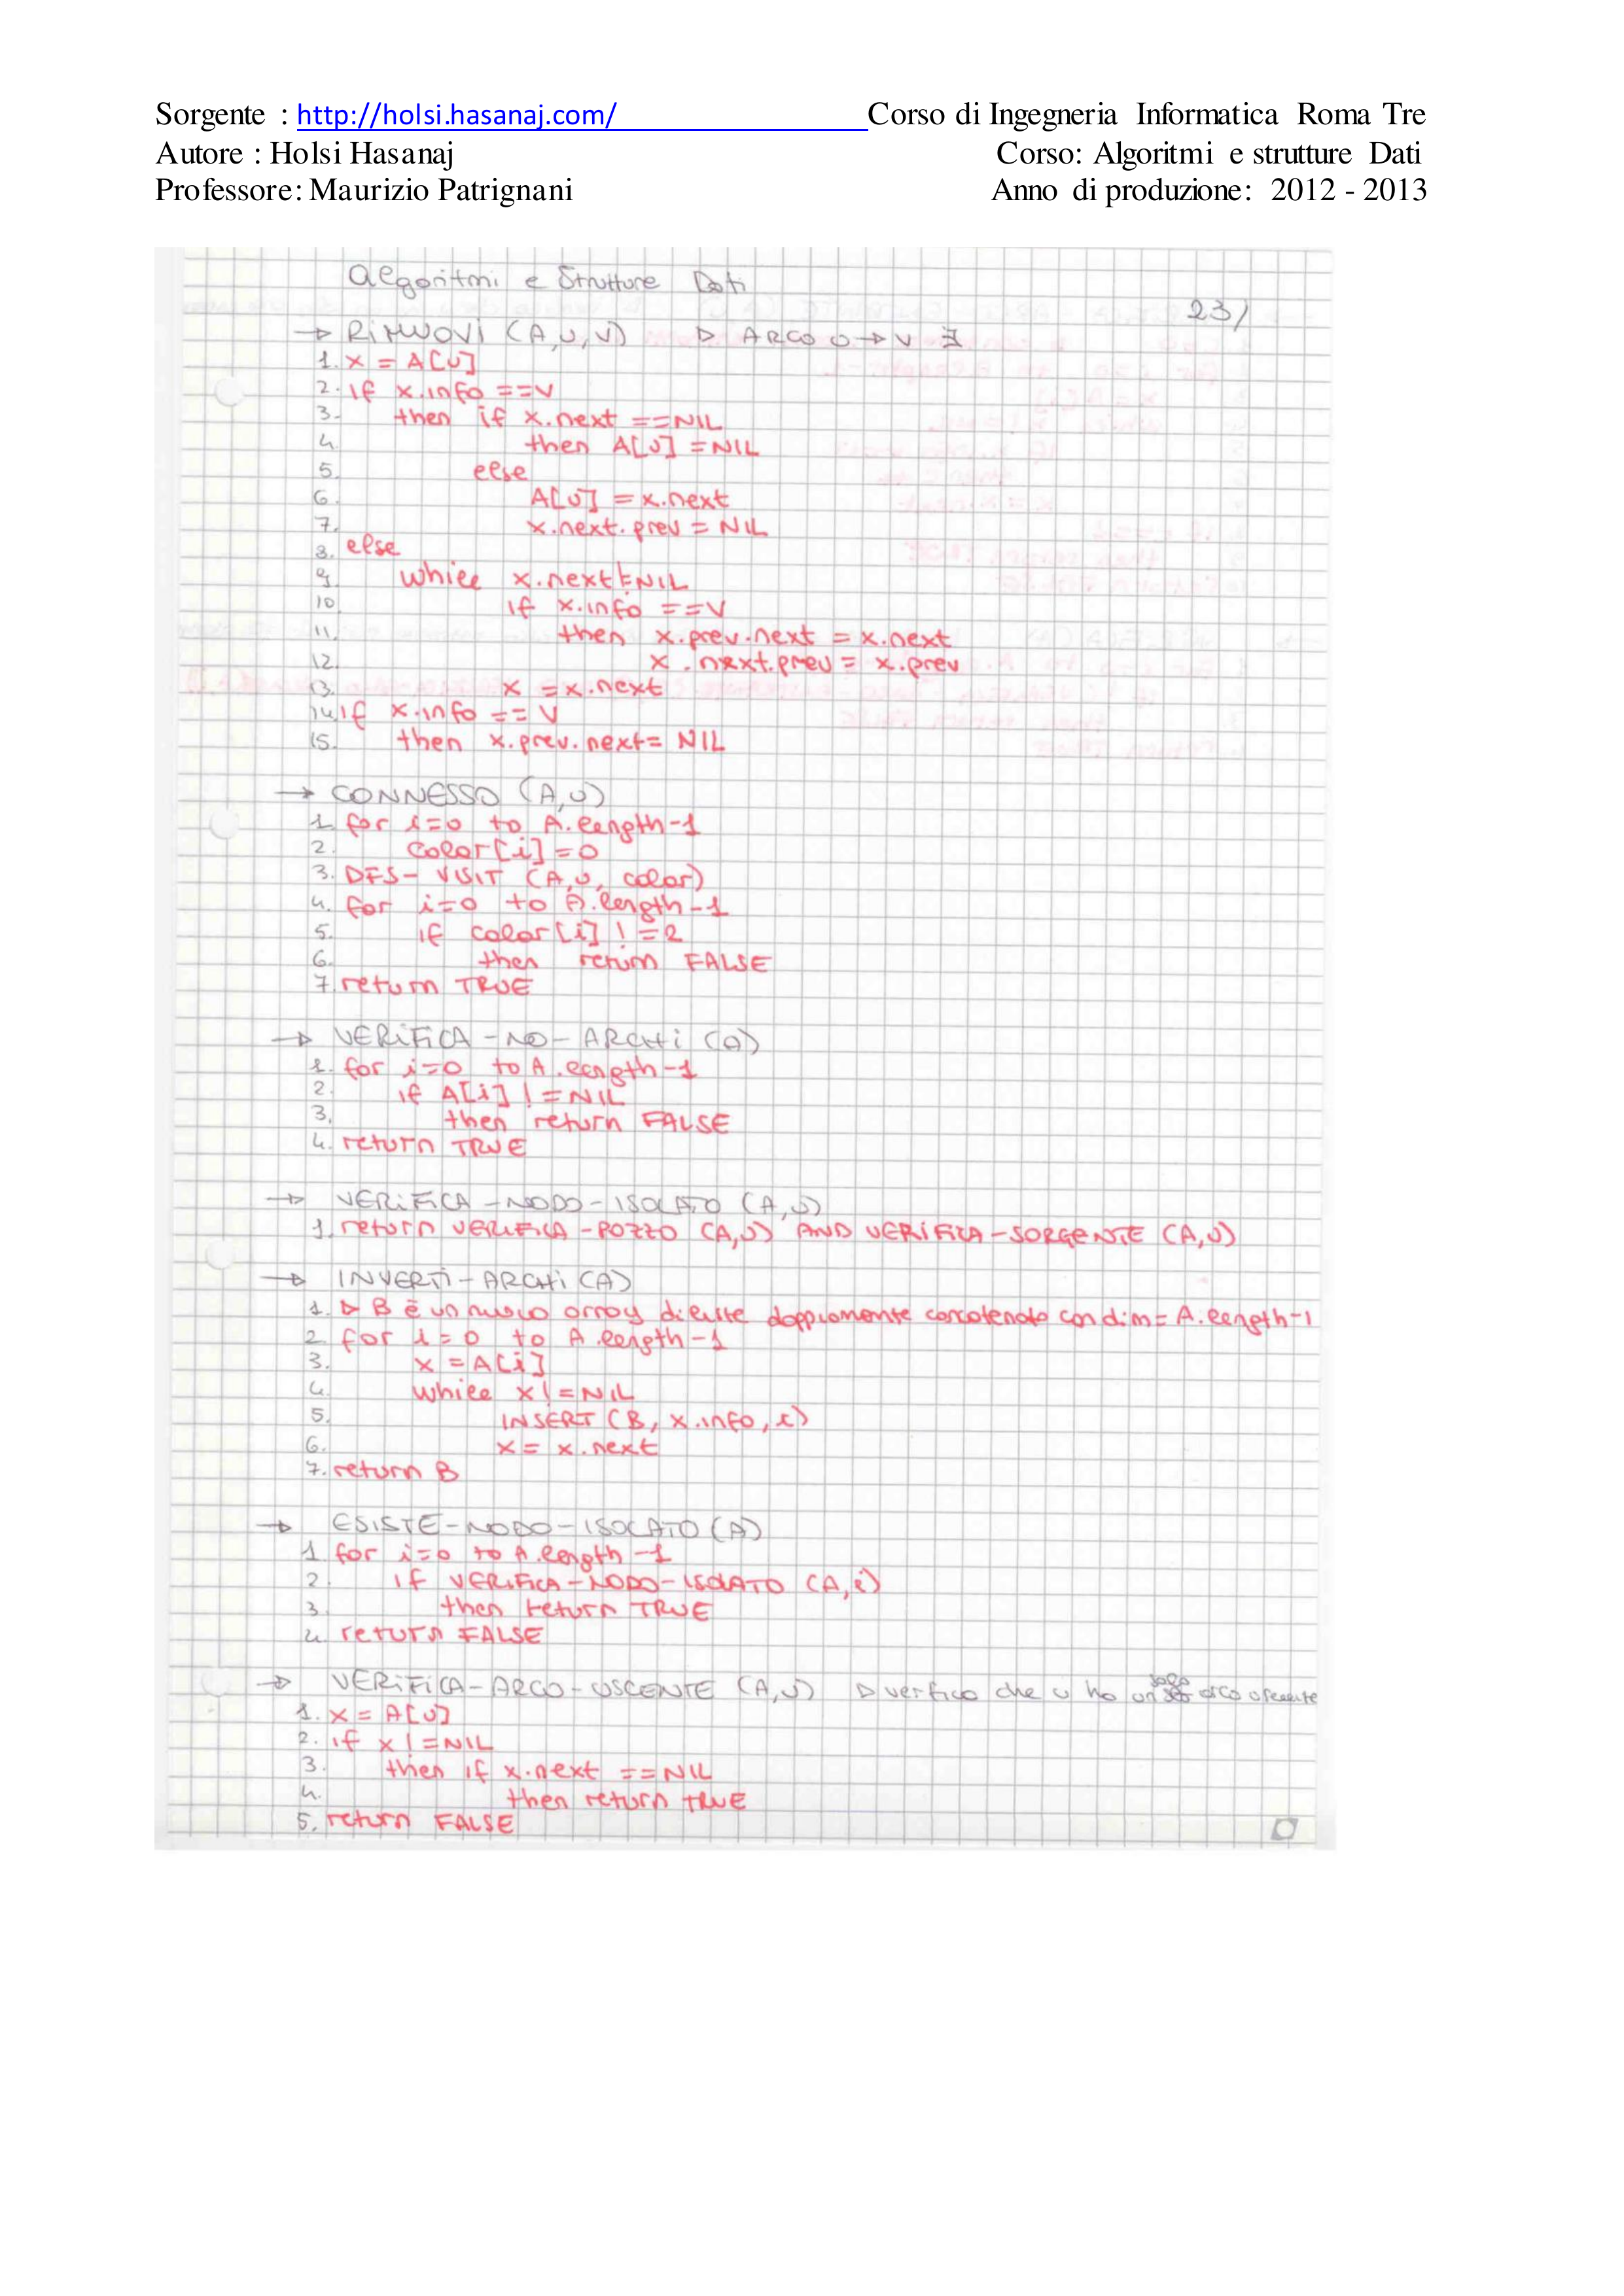 Sorgente : http://holsi.hasanaj.com/ Corso di Ingegneria Informatica Roma Tre
Autore : Holsi Hasanaj Corso: Algoritmi e strutture Dati
Professore: Maurizio Patrignani Anno di produzione: 2012 - 2013
Algoritmi e Strutture Dati
23/
→ RIMUOVI (A,U,V) ▷ ARCO U→V ∃
1. x = A[U]
2. if x.info ==V
3. then if x.next ==NIL
4. then A[U] =NIL
5. else
6. A[U] =x.next
7. x.next.prev = NIL
8. else
9. while x.next!=NIL
10. if x.info ==V
11. then x.prev.next = x.next
12. x.next.prev = x.prev
13. x =x.next
14. if x.info == V
15. then x.prev.next= NIL
→ CONNESSO (A,U)
1. for i=0 to A.length-1
2. color[i]=0
3. DFS-VISIT (A,U, color)
4. for i=0 to A.length-1
5. if color[i] !=2
6. then return FALSE
7. return TRUE
→ VERIFICA-NO-ARCHI (A)
1. for i=0 to A.length-1
2. if A[i] !=NIL
3. then return FALSE
4. return TRUE
→ VERIFICA-NODO-ISOLATO (A,U)
1. return VERIFICA-POZZO (A,U) AND VERIFICA-SORGENTE (A,U)
→ INVERTI-ARCHI (A)
1. ▷ B è un nuovo array di liste doppiamente concatenate con dim= A.length-1
2. for i=0 to A.length-1
3. x =A[i]
4. while x!=NIL
5. INSERT (B, x.info, i)
6. x= x.next
7. return B
→ ESISTE-NODO-ISOLATO (A)
1. for i=0 to A.length-1
2. if VERIFICA-NODO-ISOLATO (A,i)
3. then return TRUE
4. return FALSE
→ VERIFICA-ARCO-USCENTE (A,U) ▷ verifico che u ha un solo arco uscente
1. x = A[U]
2. if x !=NIL
3. then if x.next ==NIL
4. then return TRUE
5. return FALSE